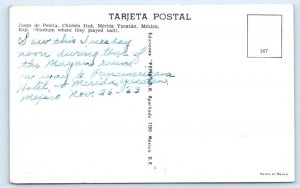 TARJETA POSTAL
Juego de Pelota, Chichén Itzá, Mérida, Yucatán, México.
Esp. (Stadium where they played ball).
Saw this Tuesday
noon during tour of
the Mayan ruins
on way to Panamericana
Hotel at Merida, Yucatan,
Mexico Nov. 26-63
Apartado 7190 Mexico D.F.
167
Hecho en México